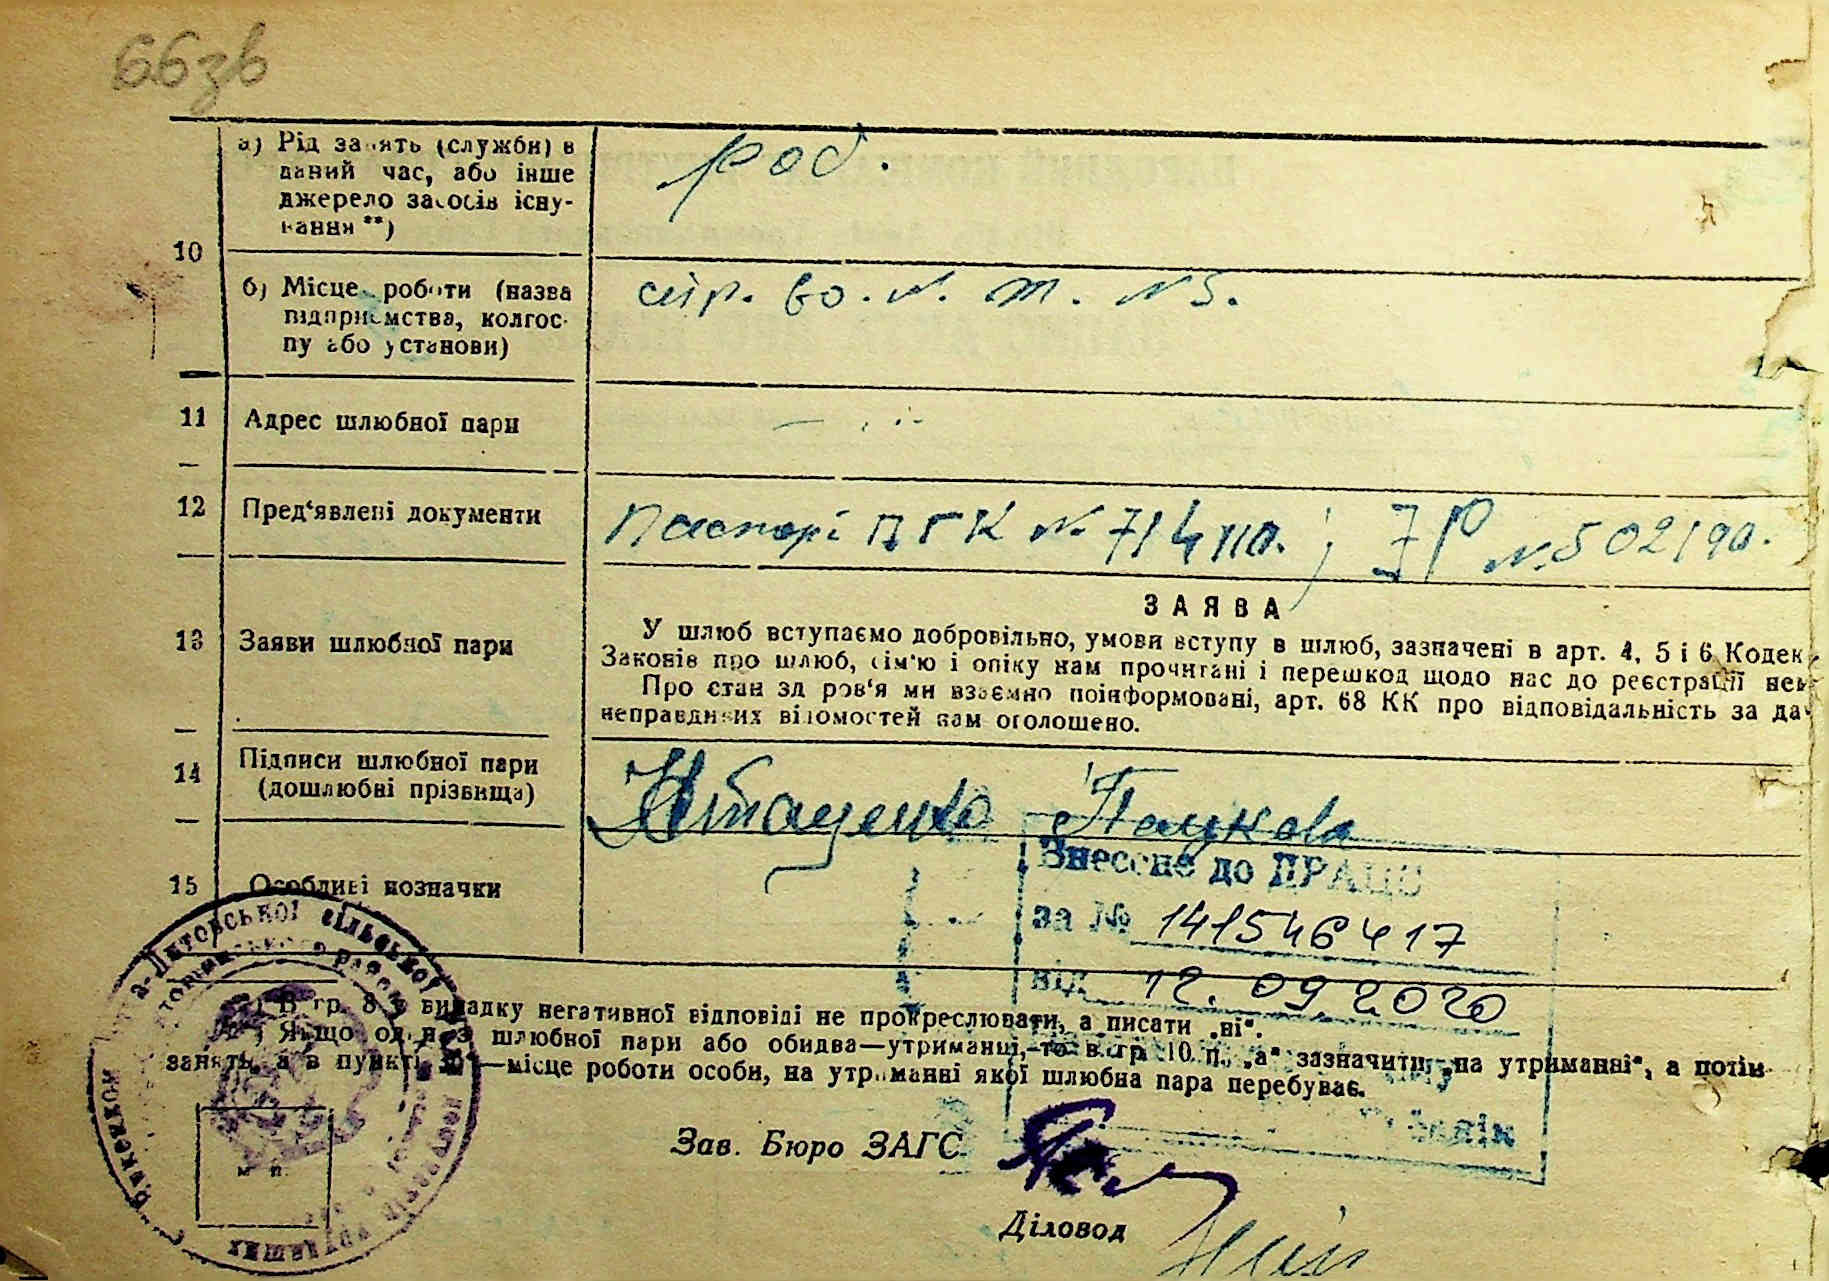 66зв
а) Рід занять (служби) в
даний час, або інше
джерело засобів існу-
вання **)
роб.
10
б) Місце роботи (назва
підприємства, колгос-
пу або установи)
11
Адрес шлюбної пари
12
Пред‘явлені документи
Паспорт ПГК № 714110. ; № 502190.
13
Заяви шлюбної пари
ЗАЯВА
У шлюб вступаємо добровільно, умови вступу в шлюб, зазначені в арт. 4, 5 і 6 Кодек
Законів про шлюб, сім'ю і опіку нам прочитані і перешкод щодо нас до реєстрації нем
Про стан здоров‘я ми взаємно поінформовані, арт. 68 КК про відповідальність за да
неправдивих відомостей нам оголошено.
14
Підписи шлюбної пари
(дошлюбні прізвища)
Паукова
15
Особливі позначки
Внесене до ДРАЦС
за № 1415546417
від 12.09.2020
*) В гр. 8 в випадку негативної відповіді не прокреслювати, а писати „ні“.
**) Якщо один з шлюбної пари або обидва—утриманці, то в гр. 10 п. „а“ зазначити „на утриманні“, а потім
занять, а в пункті —місце роботи особи, на утриманні якої шлюбна пара перебуває.
Зав. Бюро ЗАГС
м. п.
Діловод